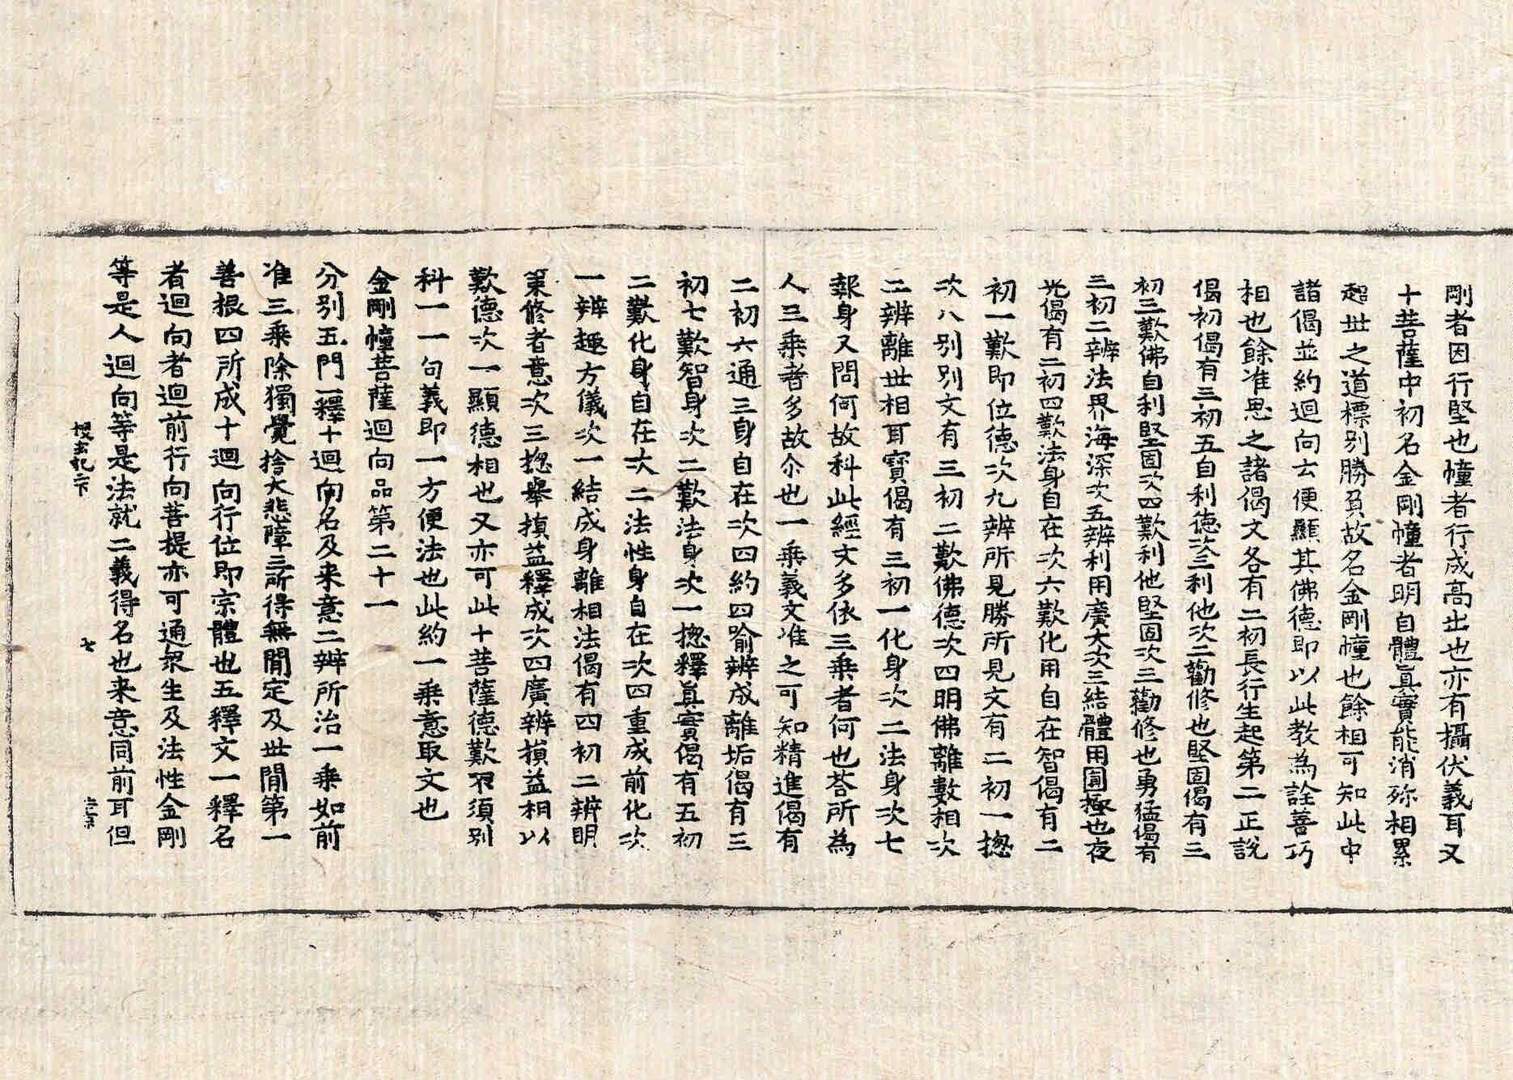 剛者因行堅也幢者行成高出也亦有攝伏義耳又
十菩薩中初名金剛幢者明自體真實能消殄相累
超世之道標別勝負故名金剛幢也餘相可知此中
諸偈並約迴向云便顯其佛德即以此教為詮善巧
相也餘准思之諸偈文各有二初長行生起第二正說
偈初偈有三初五自利德次三利他次二勸修也堅固偈有三
初三歎佛自利堅固次四歎利他堅固次三勸修也勇猛偈有
三初二辨法界海深次五辨利用廣大次三結體用圓極也夜
光偈有二初四歎法身自在次六歎化用自在智偈有二
初一歎即位德次九辨所見勝所見文有二初一揔
次八別別文有三初二歎佛德次四明佛離數相次
二辨離世相耳寶偈有三初一化身次二法身次七
報身又問何故科此經文多依三乘者何也荅所為
人三乘者多故尒也一乘義文准之可知精進偈有
二初六通三身自在次四約四喻辨成離垢偈有三
初七歎智身次二歎法身次一揔釋真實偈有五初
二歎化身自在次二法性身自在次四重成前化次
一辨趣方儀次一結成身離相法偈有四初二辨明
策修者意次三揔舉損益釋成次四廣辨損益相以
歎德次一顯德相也又亦可此十菩薩德歎不須別
科一一句義即一方便法也此約一乘意取文也
金剛幢菩薩迴向品第二十一
分別五門一釋十迴向名及来意二辨所治一乘如前
准三乘除獨覺捨大悲障三所得無間定及世間第一
善根四所成十迴向行位即宗體也五釋文一釋名
者迴向者迴前行向菩提亦可通衆生及法性金剛
等是人迴向等是法就二義得名也来意同前耳但
搜玄記二下 七